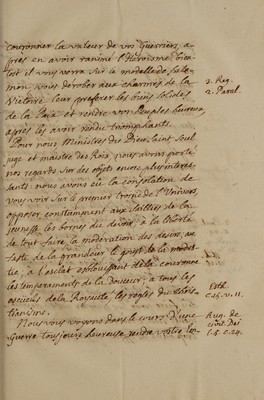 couronner la valeur de vos Guerriers, a-
pres en avoir ranimé l'Heroisme, bien
tost il vous verra sur le modelle de Salo-
mon vous derober aux charmes de la
Victoire, leur preferer les biens solides
de la Paix et rendre vos Peuples heureux,
apres les avoir rendu triomphants.
2. Reg.
2. Paral.
Pour nous Ministres du Dieu Saint seul
juge et maistre des Rois, nous avons porté
nos regards sur des objets encore plus interes-
sants. nous avons eu la consolation de
vous voir sur le premier trosne de l'Univers,
opposer constamment aux saillies de la
jeunesse les bornes du devoir, à la liberté
de tout faire, la moderation des desirs, au
faste de la grandeur le goust de la modes-
tie, à l'esclat esblouissant de la couronne
les temperaments de la Douceur, à tous les
escueils de la Royauté, les regles du Chris-
tianisme.
Esth.
C. 15. v. 11.
Nous vous voyons dans le cours d'une
Guerre tousjours heureuse rendre vostre
Aug. de
civit. Dei
l. 5. c. 24.